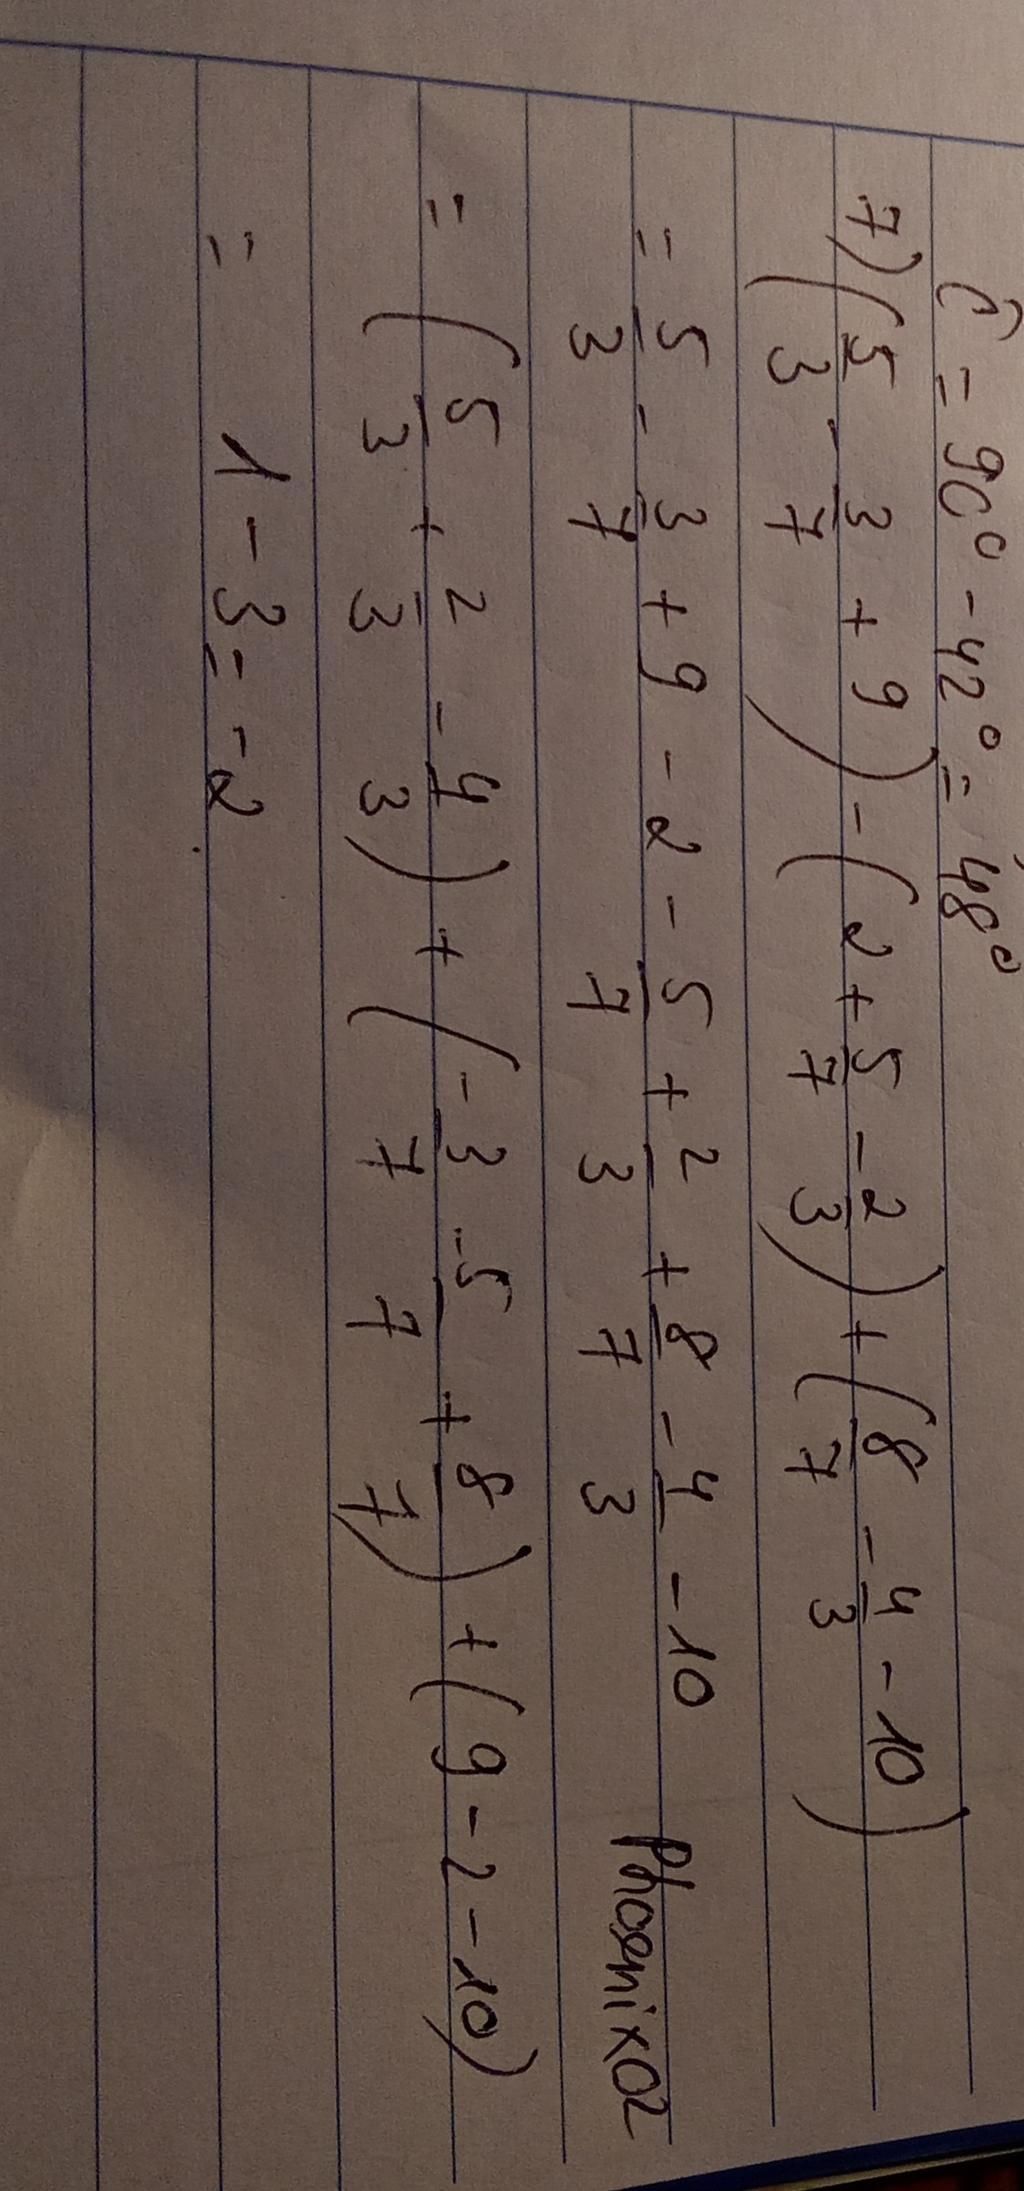 Ĉ = 90° - 42° = 48°
7) (5/3 - 3/7 + 9) - (2 + 5/7 - 2/3) + (8/7 - 4/3 - 10)
= 5/3 - 3/7 + 9 - 2 - 5/7 + 2/3 + 8/7 - 4/3 - 10 Phoenix02
= (5/3 + 2/3 - 4/3) + (-3/7 - 5/7 + 8/7) + (9 - 2 - 10)
= 1 - 3 = -2